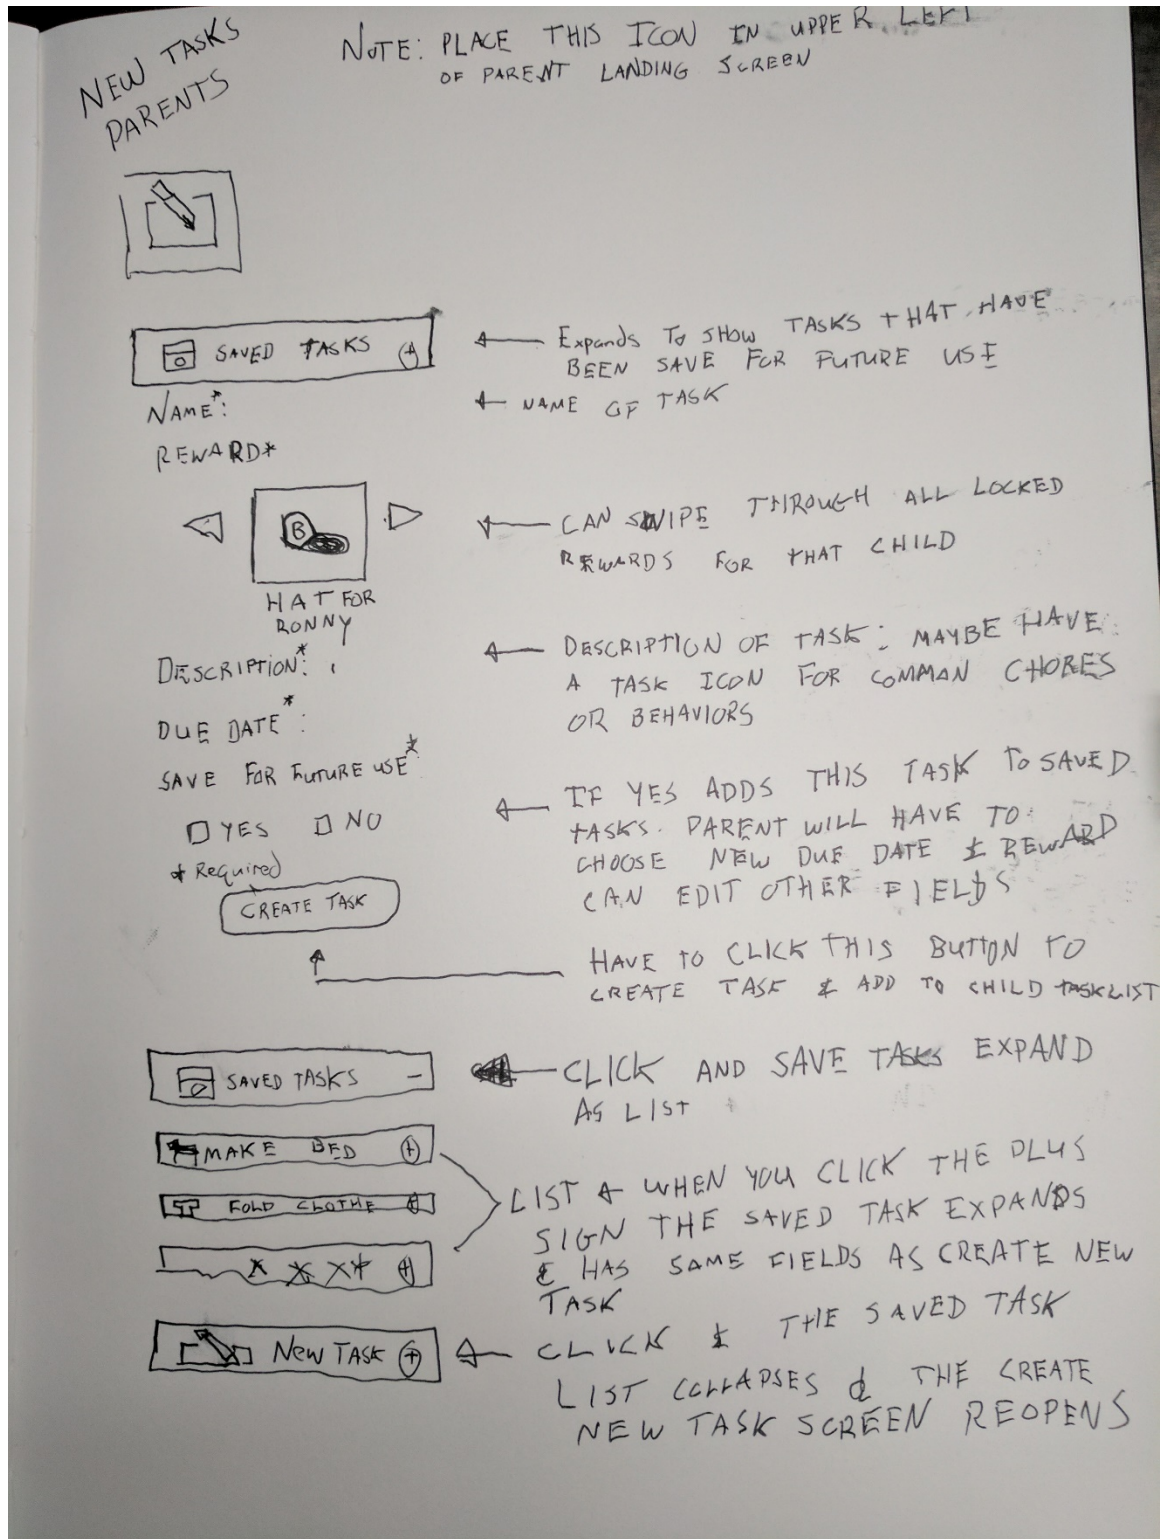 NEW TASKS
PARENTS
NOTE: PLACE THIS ICON IN UPPER LEFT
OF PARENT LANDING SCREEN
SAVED TASKS +
Expands To SHOW TASKS THAT HAVE
BEEN SAVE FOR FUTURE USE
NAME*:
NAME OF TASK
REWARD*
B
HAT FOR
RONNY
CAN SWIPE THROUGH ALL LOCKED
REWARDS FOR THAT CHILD
DESCRIPTION*:
DESCRIPTION OF TASK: MAYBE HAVE
A TASK ICON FOR COMMAN CHORES
OR BEHAVIORS
DUE DATE*:
SAVE FOR FUTURE USE*
YES NO
* Required
IF YES ADDS THIS TASK TO SAVED
TASKS. PARENT WILL HAVE TO
CHOOSE NEW DUE DATE & REWARD
CAN EDIT OTHER FIELDS
CREATE TASK
HAVE TO CLICK THIS BUTTON TO
CREATE TASK & ADD TO CHILD TASKLIST
SAVED TASKS -
CLICK AND SAVE TASKS EXPAND
AS LIST
MAKE BED +
FOLD CLOTHE +
X X X X +
LIST & WHEN YOU CLICK THE PLUS
SIGN THE SAVED TASK EXPANDS
& HAS SAME FIELDS AS CREATE NEW
TASK
NEW TASK +
CLICK & THE SAVED TASK
LIST COLLAPSES & THE CREATE
NEW TASK SCREEN REOPENS